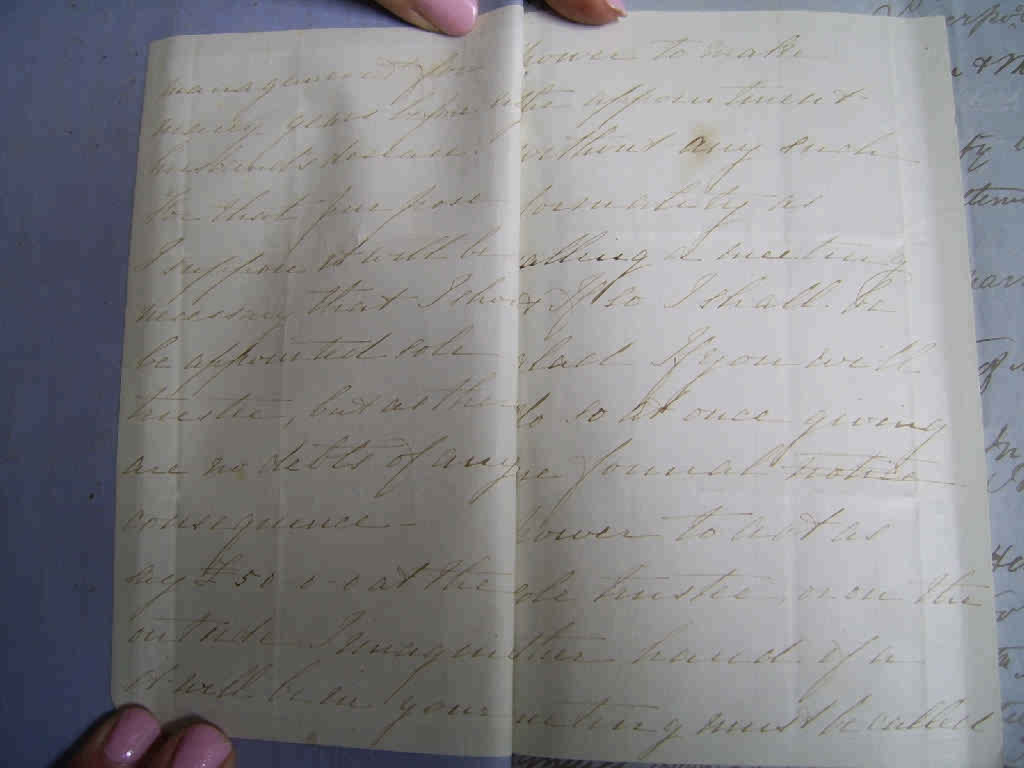 management for
many years before
husband's
for that purpose
I suppose it will be
necessary that I sho
be appointed sole
trustee, but as the
are no debts of any
consequence -
say £50 at the
outside I imagine
it will be in your
power to make
the appointment
without any such
formality as
alling a meeting
If so I shall be
glad If you will
do so at once giving
me formal notice
power to act as
ole trustee, or on the
ther hand if a
meeting must be called